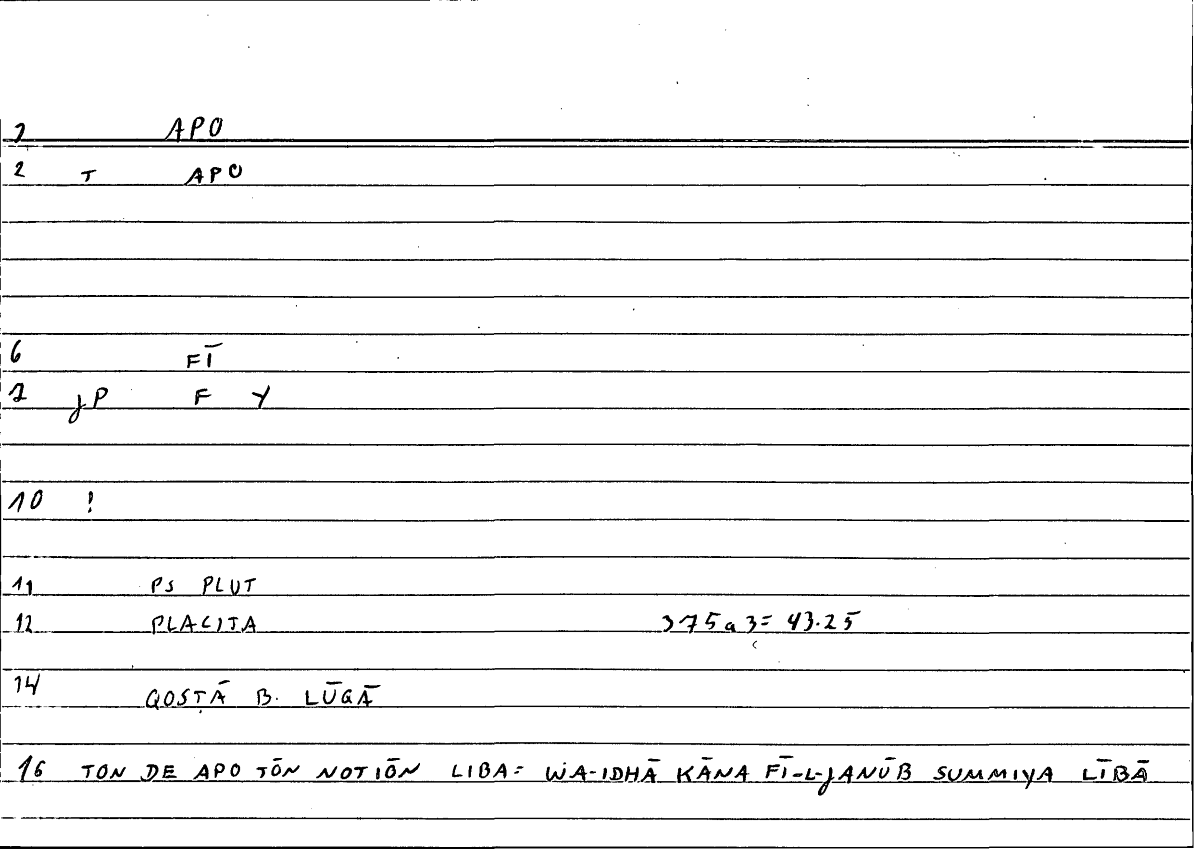 1 APO
2 T APO
6 FĪ
7 jP F Y
10 !
11 PS PLUT
12 PLACITA 375a3= 43.25
14 QOSṬĀ B. LŪQĀ
16 TON DE APO TŌN NOTIŌN LIBA= WA-IDHĀ KĀNA FĪ-L-JANŪB SUMMIYA LĪBĀ